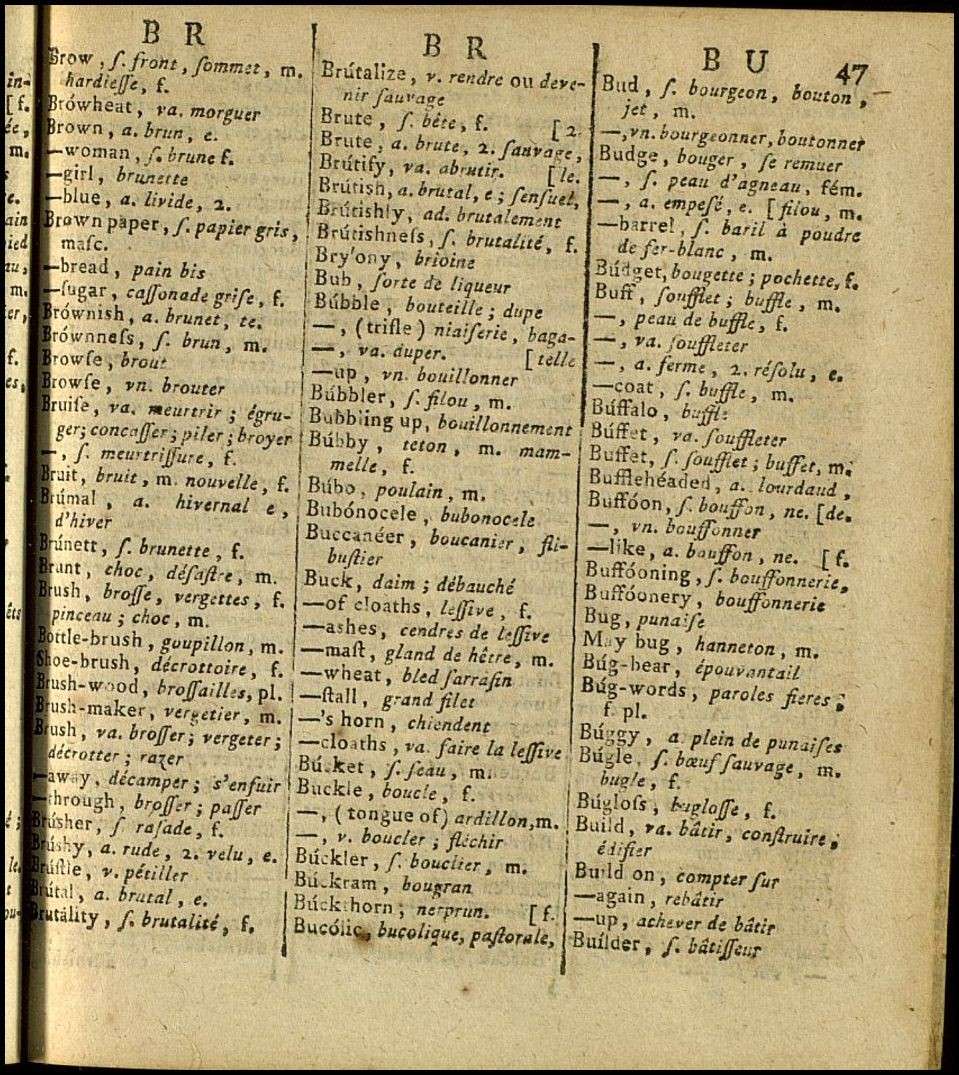 B R
Brow, ſ. front, ſommet, m.
hardieſſe, f.
Brówheat, va. morguer
Brown, a. brun, e.
—woman, ſ. brune f.
—girl, brunette
—blue, a. livide, 2.
Brown paper, ſ. papier gris,
maſc.
—bread, pain bis
—ſugar, caſſonade griſe, f.
Brównish, a. brunet, te.
Brównneſs, ſ. brun, m.
Browſe, brout
Browſe, vn. brouter
Bruiſe, va. meurtrir; égru-
ger; concaſſer; piler; broyer
—, ſ. meurtriſſure, f.
Bruit, bruit, m. nouvelle, f.
Brúmal, a. hivernal e,
d'hiver
Brúnett, ſ. brunette, f.
Brunt, choc, déſaſtre, m.
Brush, broſſe, vergettes, f.
pinceau; choc, m.
Bottle-brush, goupillon, m.
Shoe-brush, décrottoire, f.
Brush-wood, broſſailles, pl.
Brush-maker, vergetier, m.
Brush, va. broſſer; vergeter;
décrotter; razer
—away, décamper; s'enfuir
—through, broſſer; paſſer
Brúsher, ſ raſade, f.
Brúshy, a. rude, 2. velu, e.
Brúſtle, v. pétiller
Brútal, a. brutal, e.
Brutálity, ſ. brutalité, f.
B R
Brútalize, v. rendre ou deve-
nir ſauvage
Brute, ſ. bête, f. [2.
Brute, a. brute, 2. ſauvage,
Brútify, va. abrutir. [le.
Brútish, a. brutal, e; ſenſuel,
Brútishly, ad. brutalement
Brútishneſs, ſ. brutalité, f.
Bry'ony, brioine
Bub, ſorte de liqueur
Búbble, bouteille; dupe
—, (trifle) niaiſerie, baga-
—, va. duper. [telle
—up, vn. bouillonner
Búbbler, ſ. filou, m.
Bubbling up, bouillonnement
Búbby, teton, m. mam-
melle, f.
Búbo, poulain, m.
Bubónocele, bubonocele
Buccanéer, boucanier, fli-
buſtier
Buck, daim; débauché
—of cloaths, leſſive, f.
—ashes, cendres de leſſive
—maſt, gland de hêtre, m.
—wheat, bled ſarraſin
—ſtall, grand filet
—'s horn, chiendent
—cloaths, va. faire la leſſive
Búcket, ſ. ſeau, m.
Buckle, boucle, f.
—, (tongue of) ardillon, m.
—, v. boucler; fléchir
Búckler, ſ. bouclier, m.
Búckram, bougran
Búckthorn; nerprun. [f.
Bucólic, bucolique, paſtorale,
B U 47
Bud, ſ. bourgeon, bouton,
jet, m.
—, vn. bourgeonner, boutonner
Budge, bouger, ſe remuer
—, ſ. peau d'agneau, fém.
—, a. empeſé, e. [filou, m.
—barrel, ſ. baril à poudre
de fer-blanc, m.
Búdget, bougette; pochette, f.
Buff, ſoufflet; buffle, m.
—, peau de buffle, f.
—, va. ſouffleter
—, a. ferme, 2. réſolu, e.
—coat, ſ. buffle, m.
Búffalo, buffle
Búffet, va. ſouffleter
Buffet, ſ. ſoufflet; buffet, m.
Buffleheaded, a. lourdaud,
Buffóon, ſ. bouffon, ne. [de.
—, vn. bouffonner
—like, a. bouffon, ne. [f.
Buffóoning, ſ. bouffonnerie,
Buffóonery, bouffonnerie
Bug, punaiſe
May bug, hanneton, m.
Búg-bear, épouvantail
Búg-words, paroles fieres,
f. pl.
Búggy, a. plein de punaiſes
Búgle, ſ. bœuf ſauvage, m.
bugle, f.
Búgloſs, bugloſſe, f.
Build, va. bâtir, conſtruire;
édifier
Build on, compter ſur
—again, rebâtir
—up, achever de bâtir
Builder, ſ. bâtiſſeur